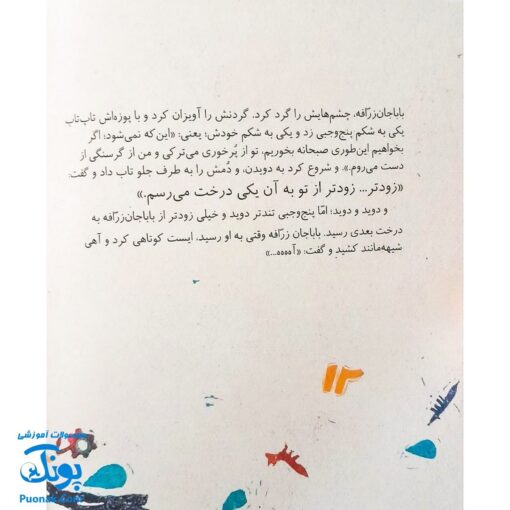 باباجان‌زرّافه، چشم‌هایش را گرد کرد، گردنش را آویزان کرد و با پوزه‌اش تاپ‌تاپ
یکی به شکم پنج‌وجبی زد و یکی به شکم خودش؛ یعنی: «این‌که نمی‌شود؛ اگر
بخواهیم این‌طوری صبحانه بخوریم، تو از پُرخوری می‌ترکی و من از گرسنگی از
دست می‌روم.». و شروع کرد به دویدن، و دُمش را به طرف جلو تاب داد و گفت:
«زودتر... زودتر از تو به آن یکی درخت می‌رسم.»
و دوید و دوید؛ امّا پنج‌وجبی تندتر دوید و خیلی زودتر از باباجان‌زرّافه به
درخت بعدی رسید. باباجان زرّافه وقتی به او رسید، ایست کوتاهی کرد و آهی
شیهه‌مانند کشید و گفت: «آه‌ه‌ه‌ه...»
۱۲
محصولات آموزشی
پونک